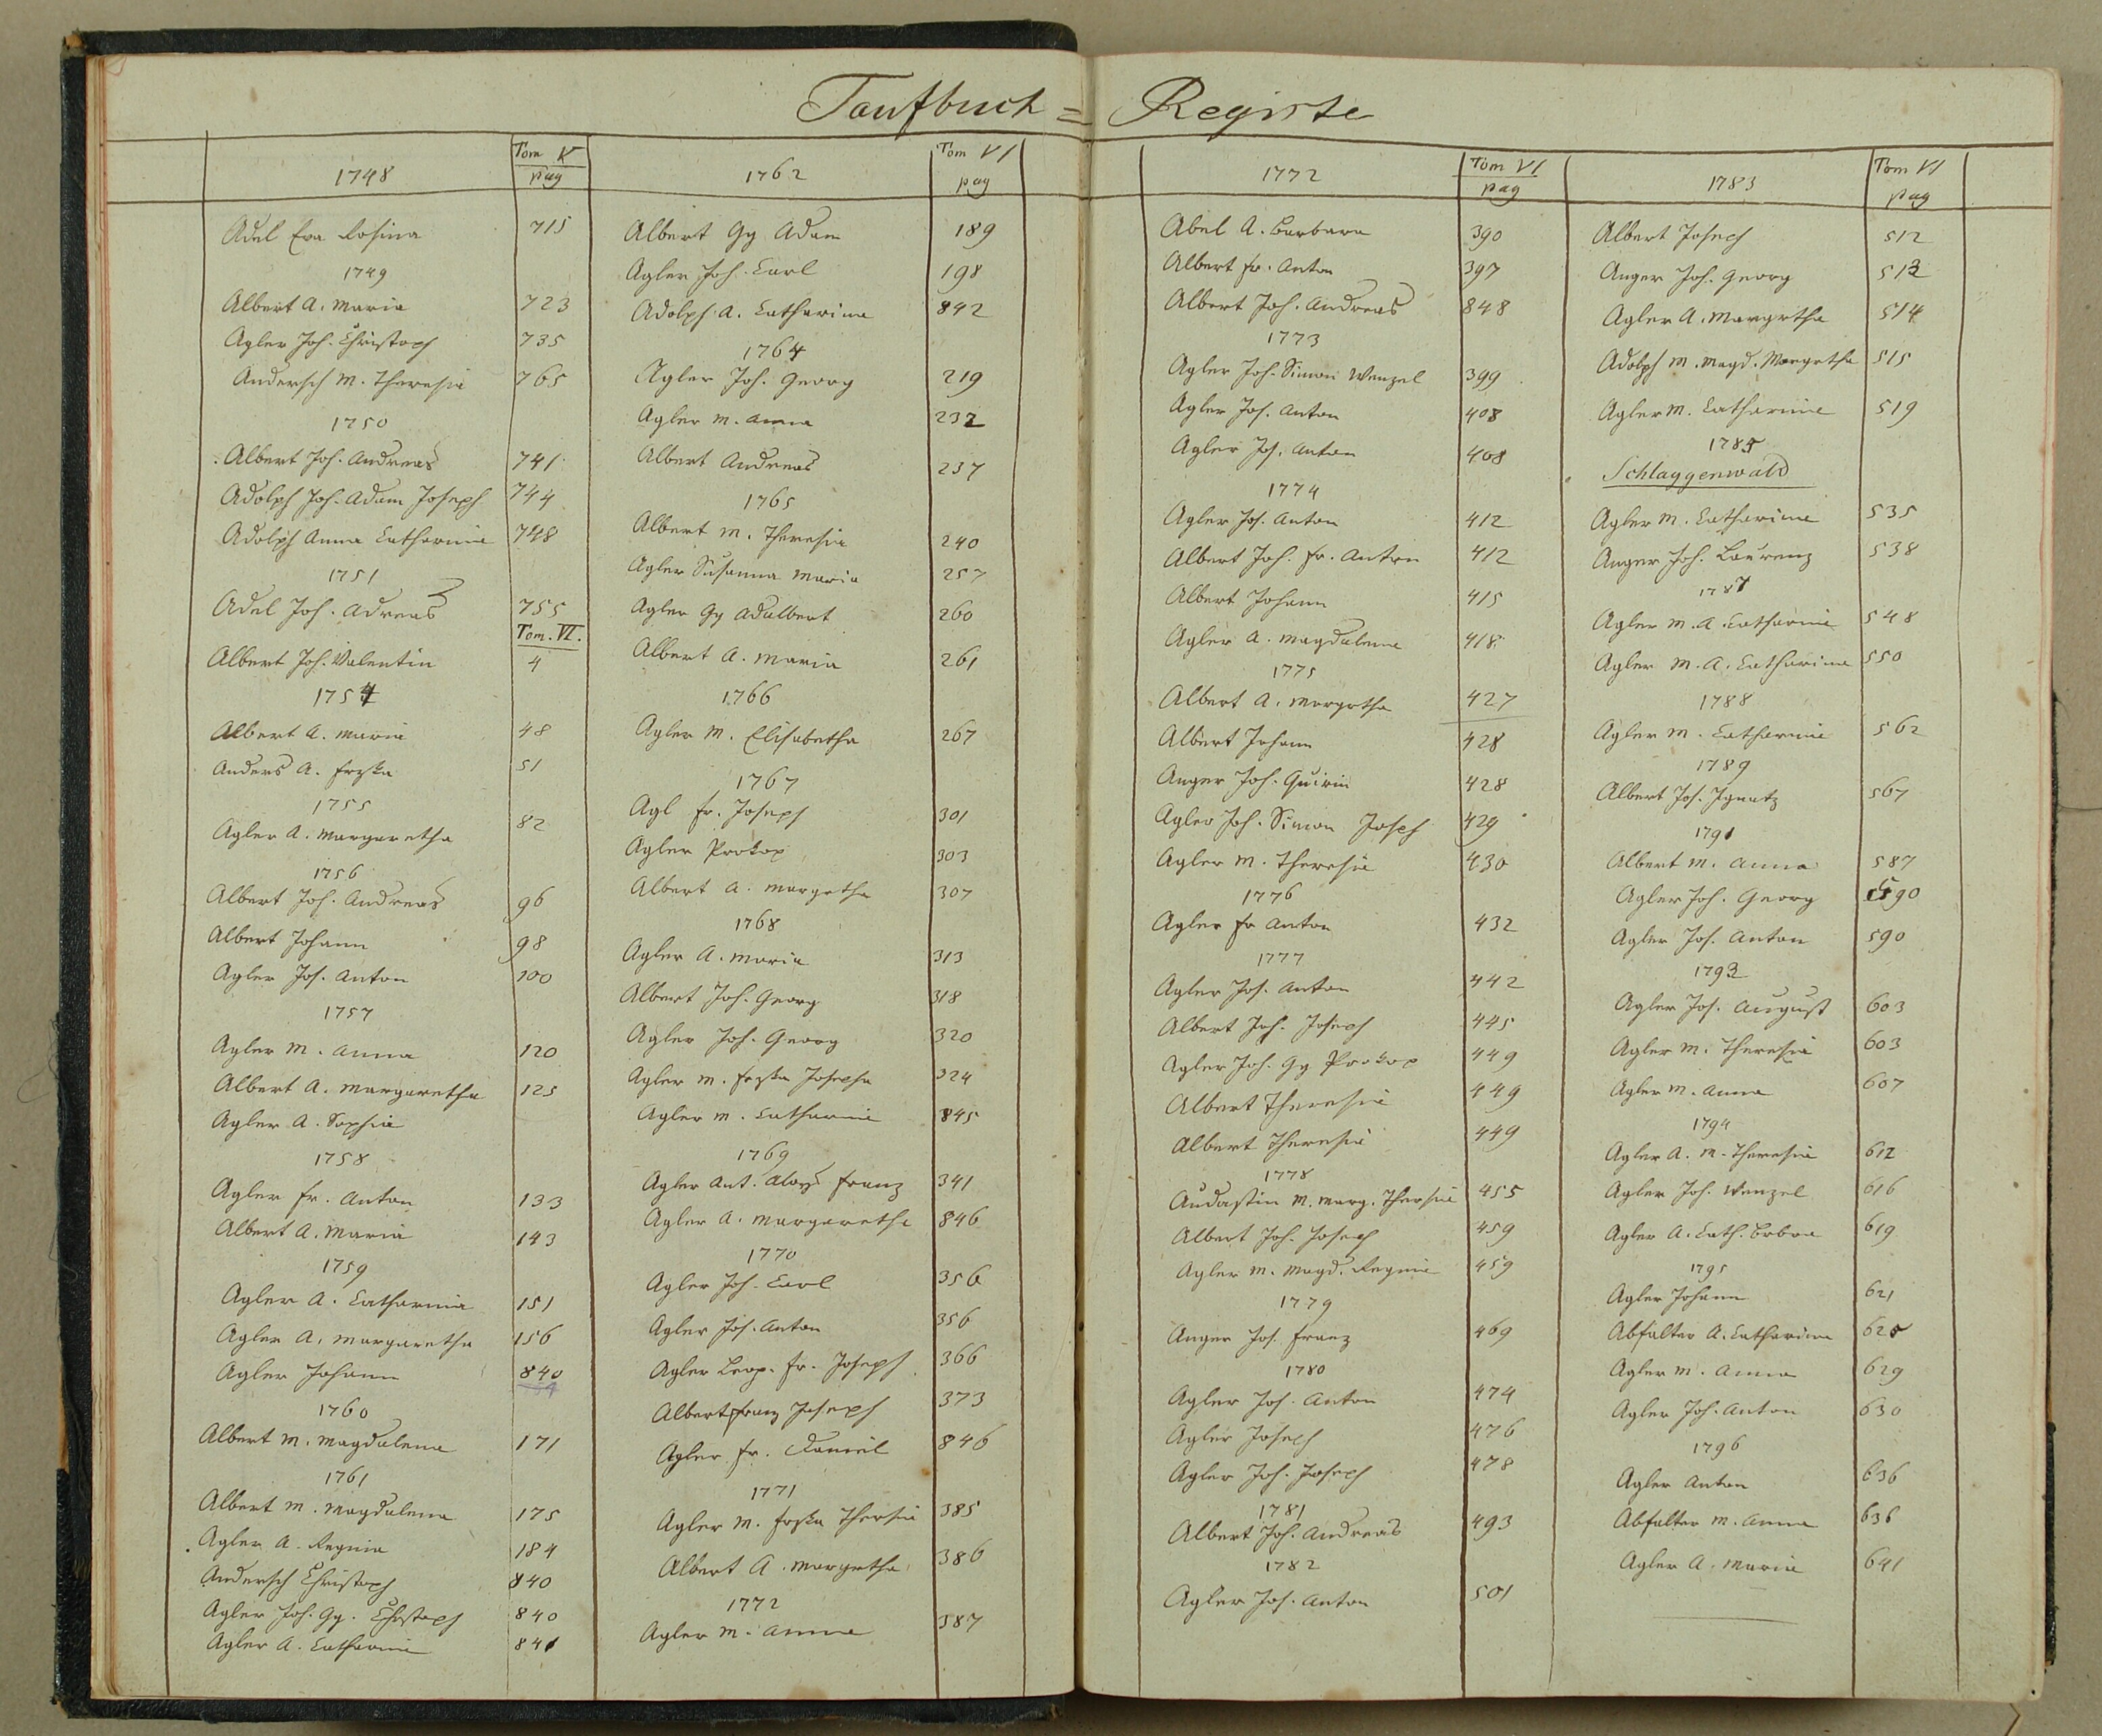 Taufbuch = Registe
1748 Tom V pag
Adel Eva Rosina 715
1749
Albert A. Maria 723
Agler Joh. Christoph 735
Andersch M. Theresia 765
1750
Albert Joh. Andreas 741
Adolph Joh. Adam Joseph 744
Adolph Anna Catharina 748
1751
Adel Joh. Adreas 755
Tom. VI.
Albert Joh. Valentin 4
1754
Albert A. Maria 48
Anders A. Frzka 51
1755
Agler A. Margaretha 82
1756
Albert Joh. Andreas 96
Albert Johann 98
Agler Jos. Anton 100
1757
Agler M. Anna 120
Albert A. Margaretha 125
Agler A. Sophia
1758
Agler Fr. Anton 133
Albert A. Maria 143
1759
Agler A. Catharina 151
Agler A. Margaretha 156
Agler Johann 840
1760
Albert M. Magdalena 171
1761
Albert M. Magdalena 175
Agler A. Regina 184
Andersch Christoph 840
Agler Joh. Gg. Christoph 840
Agler A. Catharina 841
1762 Tom VI pag
Albert Gg Adam 189
Agler Joh. Carl 198
Adolph A. Catharina 842
1764
Agler Joh. Georg 219
Agler M. Anna 232
Albert Andreas 237
1765
Albert M. Theresia 240
Agler Susanna Maria 257
Agler Gg Adalbert 260
Albert A. Maria 261
1766
Agler M. Elisabetha 267
1767
Agl Fr. Joseph 301
Agler Prokop 303
Albert A. Margetha 307
1768
Agler A. Maria 313
Albert Joh. Georg 318
Agler Joh. Georg 320
Agler M. Frzka Josepha 324
Agler M. Catharina 845
1769
Agler Ant. Aloys Franz 341
Agler A. Margaretha 846
1770
Agler Joh. Carl 356
Agler Joh. Anton 356
Agler Leop. Fr. Joseph 366
Albert Franz Joseph 373
Agler Fr. Daniel 846
1771
Agler M. Frzka Thersia 385
Albert A. Margetha 386
1772
Agler M. Anna 387
1772 Tom VI pag
Abel A. Barbara 390
Albert Fr. Anton 397
Albert Joh. Andreas 848
1773
Agler Joh. Simon Wenzel 399
Agler Jos. Anton 408
Agler Jos. Anton 408
1774
Agler Jos. Anton 412
Albert Joh. Fr. Anton 412
Albert Johann 415
Agler A. Magdalena 418
1775
Albert A. Margrtha 427
Albert Johann 428
Anger Joh. Quirin 428
Agler Joh. Simon Joseph 429
Agler M. Theresia 430
1776
Agler Fr Anton 432
1777
Agler Jos. Anton 442
Albert Joh. Joseph 445
Agler Joh. Gg Prokop 449
Albert Theresia 449
Albert Theresia 449
1778
M. Marg. Thersia 455
Albert Joh. Joseph 459
Agler M. Magd. Regina 459
1779
Anger Jos. Franz 469
1780
Agler Jos. Anton 474
Agler Joseph 476
Agler Joh. Joseph 478
1781
Albert Joh. Andreas 493
1782
Agler Jos. Anton 501
1783 Tom VI pag
Albert Joseph 512
Anger Joh. Georg 513
Agler A. Margrtha 514
Adolph M. Magd. Margretha 515
Agler M. Catharina 519
1785
Schlaggenwald
Agler M. Catharina 535
Anger Joh. Laurenz 538
1787
Agler M. A. Catharina 548
Agler M. A. Catharina 550
1788
Agler M. Catharina 562
1789
Albert Jos. Ignatz 567
1791
Albert M. Anna 587
Agler Joh. Georg 590
Agler Jos. Anton 590
1793
Agler Jos. August 603
Agler M. Theresia 603
Agler M. Anna 607
1794
Agler A. M. Theresia 612
Agler Joh. Wenzel 616
Agler A. Cath. Brbra 619
1795
Agler Johann 621
Abfalter A. Catharina 625
Agler M. Anna 629
Agler Joh. Anton 630
1796
Agler Anton 636
Abfalter M. Anna 636
Agler A. Maria 641